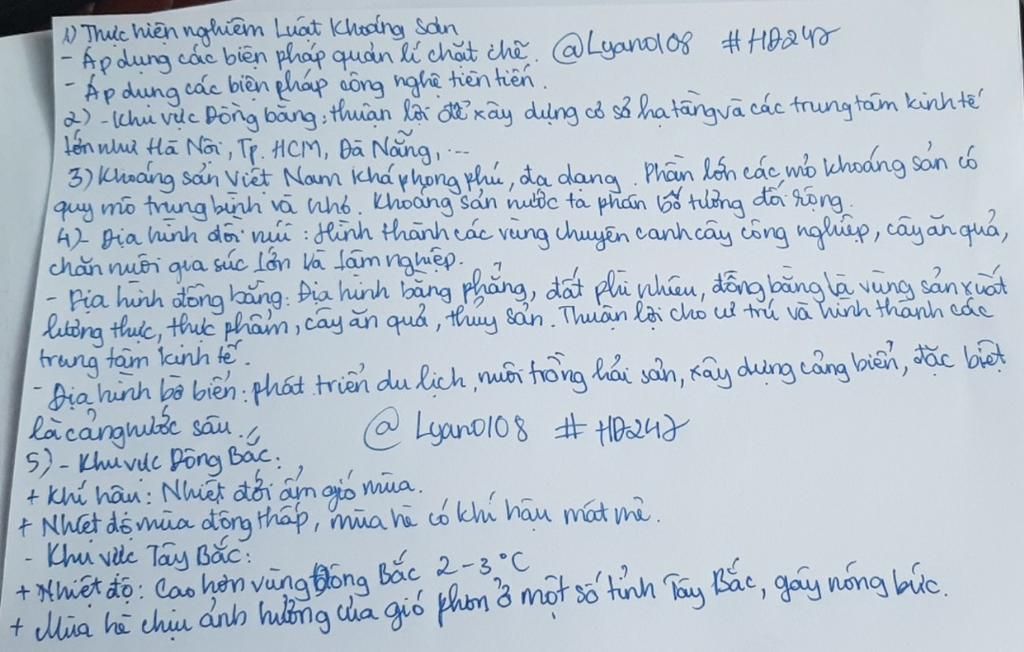 1) Thực hiện nghiêm Luật Khoáng Sản
- Áp dụng các biện pháp quản lí chặt chẽ. @Lyan0108 #HD247
- Áp dụng các biện pháp công nghệ tiên tiến.
2) - Khu vực Đồng bằng: thuận lợi để xây dựng cơ sở hạ tầng và các trung tâm kinh tế
lớn như Hà Nội, Tp. HCM, Đà Nẵng, ...
3) Khoáng sản Việt Nam khá phong phú, đa dạng. Phần lớn các mỏ khoáng sản có
quy mô trung bình và nhỏ. Khoáng sản nước ta phân bố tương đối rộng.
4) - Địa hình đồi núi: Hình thành các vùng chuyên canh cây công nghiệp, cây ăn quả,
chăn nuôi gia súc lớn và lâm nghiệp.
- Địa hình đồng bằng: Địa hình bằng phẳng, đất phì nhiêu, đồng bằng là vùng sản xuất
lương thực, thực phẩm, cây ăn quả, thủy sản. Thuận lợi cho cư trú và hình thành các
trung tâm kinh tế.
- Địa hình bờ biển: phát triển du lịch, nuôi trồng hải sản, xây dựng cảng biển, đặc biệt
là cảng nước sâu. @ Lyan0108 #HD247
5) - Khu vực Đông Bắc:
+ Khí hậu: Nhiệt đới ẩm gió mùa.
+ Nhiệt độ mùa đông thấp, mùa hè có khí hậu mát mẻ.
- Khu vực Tây Bắc:
+ Nhiệt độ: Cao hơn vùng Đông Bắc 2-3°C
+ Mùa hè chịu ảnh hưởng của gió phơn ở một số tỉnh Tây Bắc, gây nóng bức.